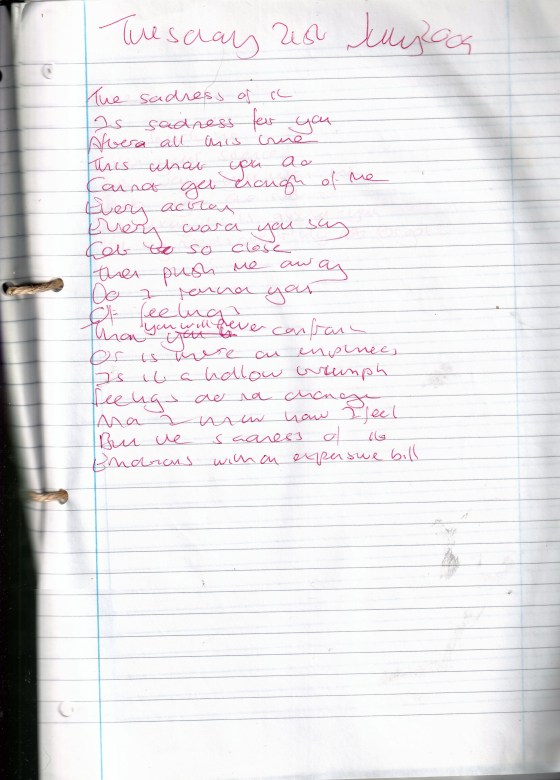 Tuesday 21st July 2009
The sadness of it
Is sadness for you
After all this time
This what you do
Cannot get enough of me
Every action
Every word you say
Get so close
then push me away
Do I remind you
Of feelings
That you will never confront
Or is there an emptiness
Is it a hollow triumph
Feelings do no change
I know how I feel
But the sadness of it
Emotions with an expensive bill